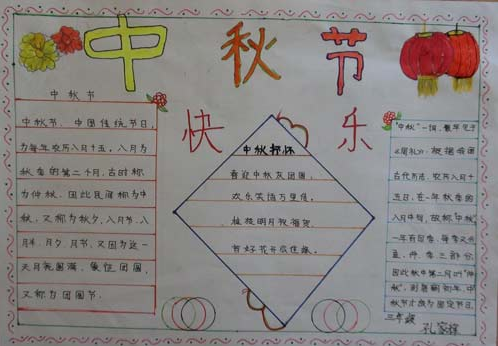 中秋节
快乐
中秋节
中秋节，中国传统节日，
为每年农历八月十五，八月为
秋季的第二个月，古时称
为仲秋，因此民间称为中
秋，又称为秋夕，八月节，八
月半，月夕，月节，又因为这一
天月亮圆满，象征团圆，
又称为团圆节。
中秋抒怀
喜迎中秋友团圆，
欢乐笑语万里传。
桂枝明月祝福贺，
后佳缘。
"中秋"一词，最早见于
《周礼》，根据我国
古代历法，农历八月十
五日，在一年秋季的
八月中旬，故称"中秋"
一年有四季，每季又分
孟、仲、季三部分，
因此秋中第二月叫"仲
秋"，到唐朝初年，中
秋节才成为固定节日。
三年级
孔